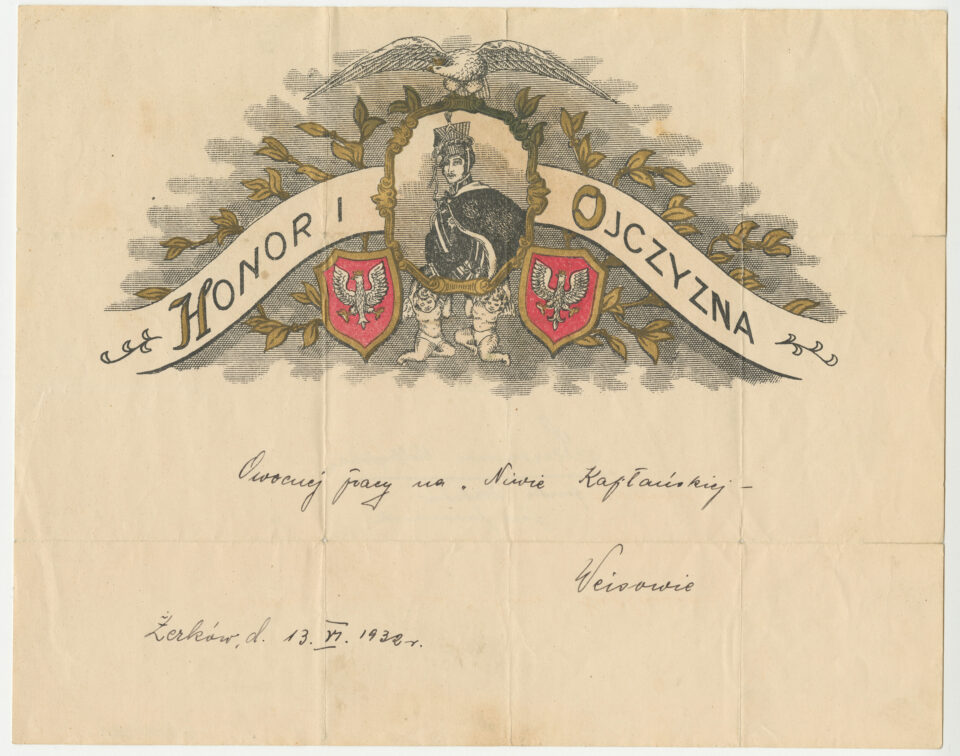 HONOR I OJCZYZNA
Owocnej pracy na . Niwie Kapłańskiej –
Weisowie
Żerków, d. 13. VI. 1932 r.